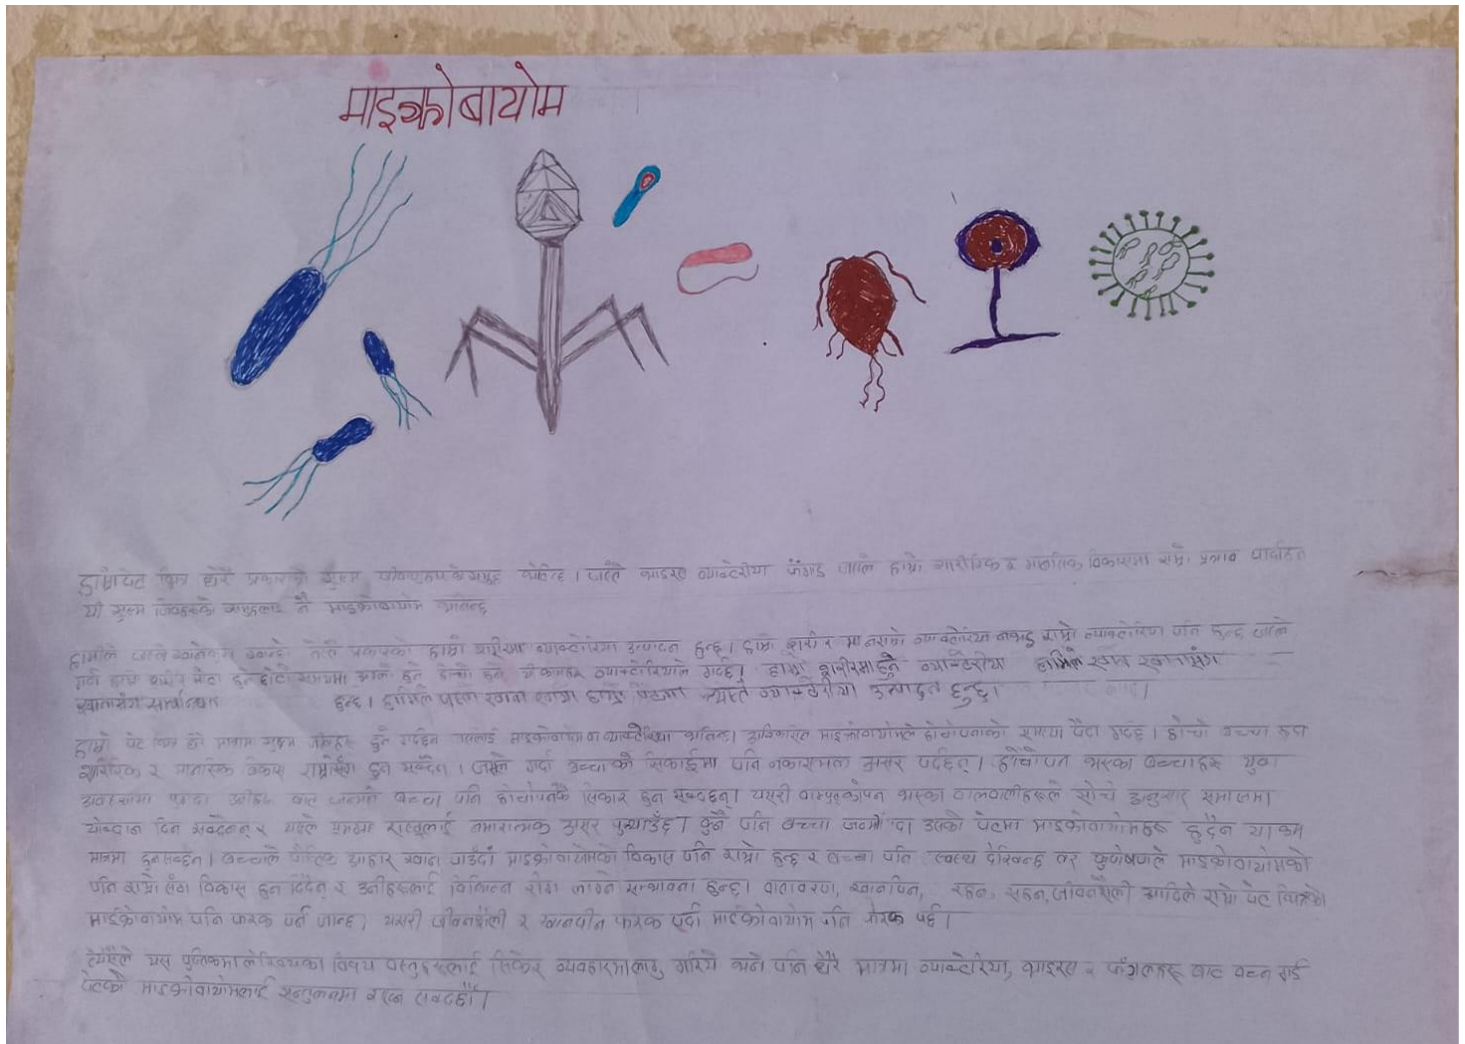 माइक्रोबायोम
हाम्रो पेट भित्र धेरै प्रकारको सुक्ष्म समुह बसेको हुन्छ । जस्तै भाइरस ब्याक्टेरीया फंगाइ जसले हाम्रो शारीरिक र मानसिक विकासमा राम्रो प्रभाव पार्दछन्
यी सुक्ष्म जिवहरुको समुहलाई नै माइक्रोबायोम भनिन्छ
हामीले जस्तो खानेकुरा खान्छौ तेस्तै प्रकारको हाम्रो शरीरमा ब्याक्टेरिया उत्पादन हुन्छ । हाम्रो शरीर मा नराम्रो ब्याक्टेरिया नभइ राम्रो ब्याक्टेरिया पनि हुन्छ जसले
हाम्रो शरीर मोटो हुने ब्याक्टेरियाले गर्दछ । हाम्रो शरीरमा हुने ब्याक्टेरीया हामिले खाने खानासंग
हुन्छ । हामिले जस्तो खाना खायो हाम्रो पेटमा त्यस्तै ब्याक्टेरीया उत्पादन हुन्छ ।
हाम्रो पेट भित्र धेरै मात्रामा सुक्ष्म जिवहरु हुने गर्दछन् जसलाई माइक्रोबायोम वा ब्याक्टेरिया भनिन्छ । अविकसित माइक्रोबायोमले होचोपनाको समस्या पैदा गर्दछ । होचो बच्चा हरु
शारीरिक र मानसिक विकास राम्रोसँग हुन सक्दैन । जसले गर्दा बच्चाको सिकाईमा पनि नकारात्मक असर पर्दछन् । होचोपन भएका बच्चाहरु युवा
अवस्थामा पुग्दा उनीहरु बाट जन्मने बच्चा पनि होचोपनकै सिकार हुन सक्दछन् । यसरी भएका बालबालीकाले सोचे अनुसार समाजमा
योगदान दिन सक्दैनन् र यसले समग्र राष्ट्रलाई नकारात्मक असर पुर्‍याउँछ । कुनै पनि बच्चा जन्मँदा उसको पेटमा माइक्रोबायोमहरु हुदैन या कम
मात्रमा हुनसक्छन । बच्चाले पौष्टिक आहार खाना पाउँदा माइक्रोबायोमको विकास पनि राम्रो हुन्छ र बच्चा पनि स्वस्थ देखिन्छ तर कुपोषणले माइक्रोबायोमको
पनि राम्रो सँग विकास हुन दिदैन र उनीहरुलाई विभिन्न रोग लाग्ने सम्भावना हुन्छ । वातावरण, खानपिन, रहन, सहन, जीवनशैली आदिले हाम्रो पेट भित्रको
माईक्रोबायोम पनि फरक पर्न जान्छ । यसरी जीवनशैली र खानपीन फरक पर्दा माईक्रोबायोम पनि फरक पर्छ ।
त्येसैले यस पुस्तिकामा लेखिएका विषय बस्तुहरुलाई सिकेर व्यवहारमा लागु गरियो भने पनि धेरै मात्रमा ब्याक्टेरिया, भाइरस र फँगसहरु बाट बच्न गई
पेटको माइक्रोबायोमलाई सन्तुलनमा राख्न सक्दछौ ।